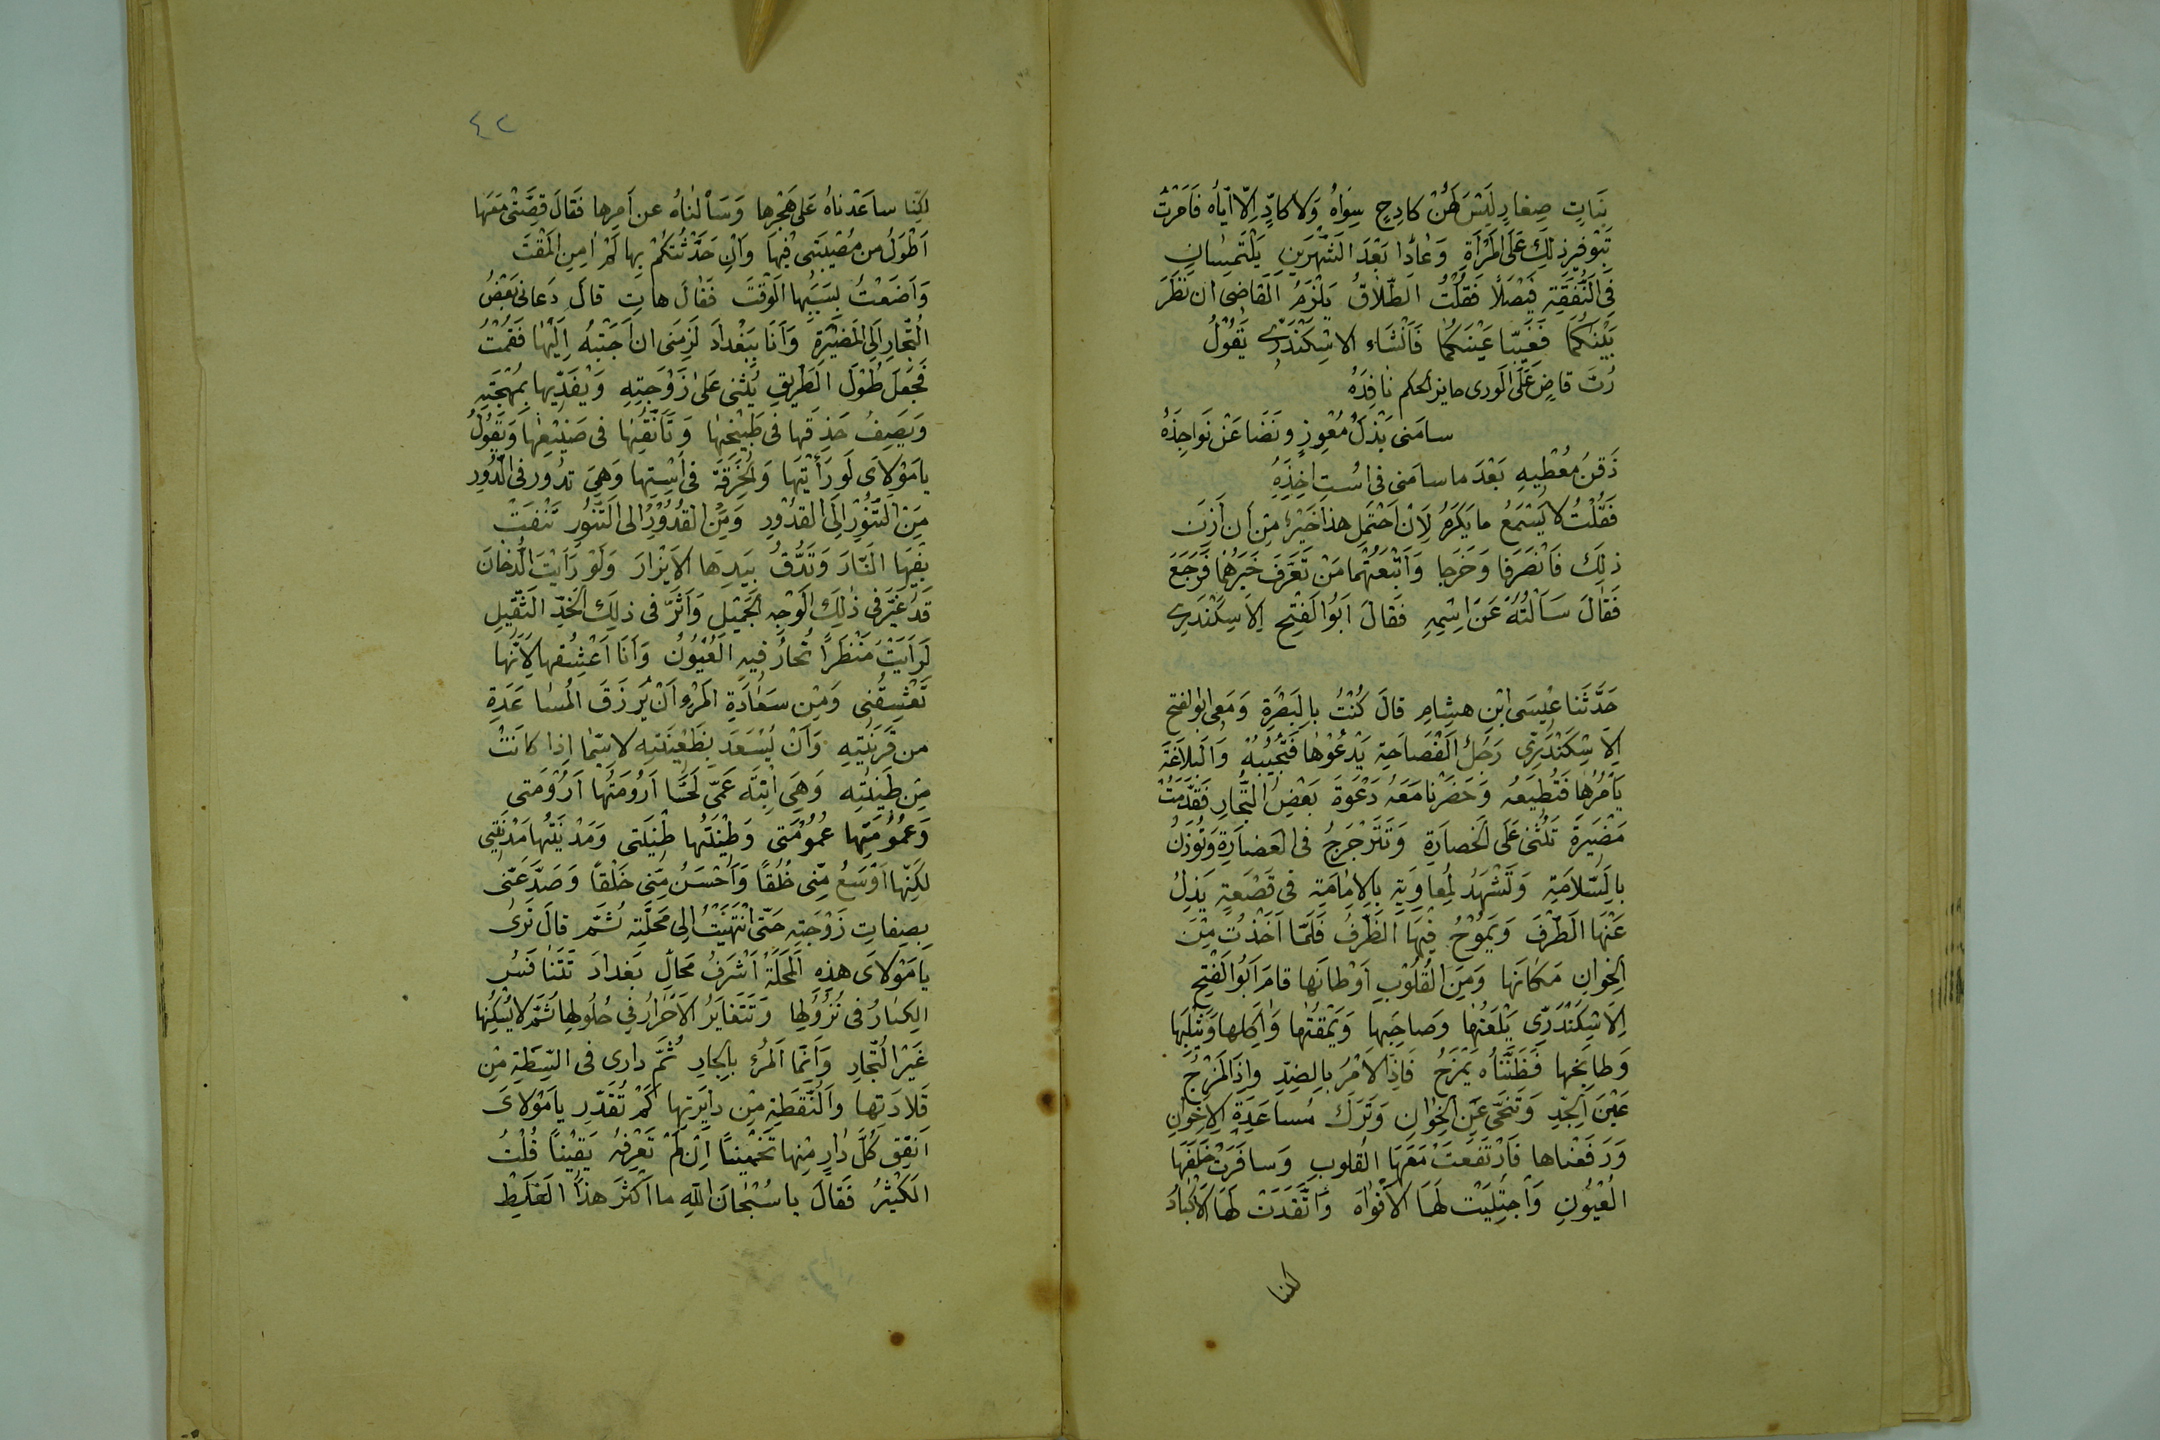 بَنَاتٍ صِغَارٍ لَيْسَ لَهُنَّ كَادِحٍ سِوَاهُ وَلَا كَادٍّ اِلَّا اِيَّاهُ فَاَمَرْتُ
بِتَوْفِيرِ ذٰلِكَ عَلَى الْمَرْأَةِ وَعَادَا بَعْدَ الشَّهْرَيْنِ يَلْتَمِسَانِ
فِى النَّفَقَةِ فَيْصَلًا فَقُلْتُ الطَّلَاقُ يَلْزَمُ الْقَاضِى اِنْ نَظَرَ
بَيْنَكُمَا فَغَيِّبَا عَيْنَكُمَا فَاَنْشَاءَ الاِسْكَنْدَرِيُّ يَقُوْلُ
رُبَّ قَاضٍ عَلَى الْوَرى جايز الحكم نَافِذِهُ
سامَنى بَذْلَ مُعْوِزٍ ونَضَا عَنْ نَوَاجِذِهْ
ذَقنُ مُعْطِيهِ بَعْدَ ما سامَنى فى اسْتِ اخِذِهُ
فَقُلْتُ لا يَسْمَعُ ما يَكرَهُ لِاَنْ اَحْتَمِلَ هذا خَيْرٌ مِنْ اَن اَزِنَ
ذٰلِكَ فَانْصَرَفا وَخَرَجا وَاَتْبَعْتُهُما مَنْ تَعَرَّفَ خَبَرَهُما فَرَجَعَ
فَقَالَ سَاَلْتُهُ عَنْ اِسْمِهِ فَقَالَ اَبُوالْفَتْحِ الاِسْكَنْدَرِى
حَدَّثَنا عِيْسَى ابْنِ هِشامٍ قالَ كُنْتُ بِالْبَصْرَةِ وَمَعِى ابُوالفتح
الاِسْكَنْدَرِىُّ رَجُلُ الْفَصَاحَةِ يَدْعُوْهَا فَتُجِيْبُهُ وَالْبَلَاغَةَ
يَأْمُرُهَا فَتُطِيْعُهُ وَحَضَرْنا مَعَهُ دَعْوَةَ بَعْضِ التُّجّارِ فَقُدِّمَتْ
مَضِيرَةٌ تَثْنى عَلَى الْحَضَارَةِ وَتَتَرَجْرَجُ فى الْغَضَارَةِ وَتُؤذِنُ
بِالسَّلَامَةِ وَتَشْهَدُ لِمُعاوِيَةِ بِالاِمامَةِ فى قَصْعَةٍ يَزِلُّ
عَنْهَا الطَّرْفُ وَيَمُوْجُ فِيْهَا الظَّرْفُ فَلَمَّا اَخَذْتْ مِنَ
الْخِوانِ مَكَانَهَا وَمِنَ الْقُلُوْبِ اَوْطَانَها قامَ اَبُوالْفَتْحِ
الاِسْكَنْدَرِيُّ يَلْعَنُهَا وَصَاحِبَها وَيَمْقُتُها وَاٰكِلَها وَيَثْلِبُها
وَطابِخَها فَظَنَّنَاهُ يَمْزَحُ فَاِذَا الاَمْرُ بِالضِدِّ واِذَا الْمَزْحُ
عَيْنَ الْجِدِّ وَتَنَحّى عَنِ الْخِوَانِ وَتَرَكَ مُساعَدَةَ الاِخْوَانِ
وَرَفَعْناها فَارْتَفَعَتْ مَعَهَا الْقُلوبُ وَسافَرَتْ خَلْفَهَا
الْعُيُونِ وَاجْتُلِبَتْ لَهَا الْاَفْوَاهَ وَاتَّقَدَتْ لَهَا الْاَكْبَادُ
لكنا
٤٢
لَكِنّا ساعَدْناهُ عَلى هَجْرِها وَسَاَلْناهُ عن اَمرِها فَقَالَ قِصَّتى مَعَها
اَطْوَلُ من مُصِيْبَتى فِيْهَا وَاِنْ حَدَّثْتُكُمْ بِها لَمْ اٰمِنِ الْمَقْتَ
وَاَضَعْتُ بِسَبَبِها الْوَقْتَ فَقالَ هاتِ قالَ دَعانى بَعْضُ
التُّجّارِ اِلَى الْمَضِيْرَةِ وَاَنَا بِبَغْدادَ لَزِمَنى ان اَجَبْتُهُ اِلَيْهَا فَقُمْتُ
فَجَعَلَ طُوْلَ الطَّرِيقِ يُثْنى عَلى زَوْجَتِهِ وَيُفَدِّيها بِمُهْجَتِهِ
وَيَصِيفُ حَذِقَها فى طَبْخِهَا وَتَأَنُّقَهَا فى صَنِيْعِهَا وَيَقُوْلُ
يا مَوْلَاىَ لَو رَأَيْتَهَا وَالْخِرْقَةَ فى اَسْتِها وَهِيَ تدُور فى الدُّوْرِ
مِنَ التَّنُّوْرِ اِلَى القُدُوْرِ وَمِنَ القُدُوْرِ الى التَّنُّورِ تَنْفُثُ
بِفِيهَا النَّارَ وَتَدُقُّ بِيَدِهَا الاَبْزَارَ وَلَوْ رَاَيْتَ الدُّخَانَ
قَدْ غَبَّرَ فى ذٰلِكَ الْوَجْهِ الْجَمِيْلِ وَاَثَّرَ فى ذٰلِكَ الْخَدِّ الثَّقِيْلِ
لَرَاَيْتَ مَنْظَرًا تُحَارُ فيهِ الْعُيُوْنُ وَاَنَا اَعْشِقُها لِاَنَّها
تَعْشِقُنى وَمِنْ سَعَادَةِ الْمَرْءِ اَنْ يُرزَقَ الْمُسَاعَدَةِ
من قَرِيْنَتِهِ وَاَنْ يُسْعَدَ بِظَعِيْنَتِهِ لاسِيَّما اِذَا كانَتْ
مِنْ طِيْنَتِهِ وَهِيَ ابْنَة عَمّى لَحًّا اَرُوْمَتُهَا اَرُوْمَتى
وَعُمُوْمَتُها عُمُوْمَتى وَطِيْنَتُها طِيْنَتى وَمَدِيْنَتُها مَدِيْنَتِى
لكِنّها اَوْسَعُ مِنّى خُلُقًا وَاَحْسَنُ مِنّى خَلْقًا وَصَدَّعَنى
بِصِفاتِ زَوْجَتِهِ حَتّى انْتَهَيْتُ اِلى مَحَلَّتِهِ ثُمَّ قالَ تَرى
يا مَوْلاىَ هذِهِ الْمَحَلَّةُ اَشْرَفُ مَحَالِّ بَغدادَ تَتَنَافَسُ
الِكبَارُ فى نُزُوْلِها وَتَتَغَايَرُ الاَحْرَارُ فى حُلُولِها ثُمَّ لا يَسْكُنُها
غَيْرَ التُّجّارِ وَاَنَّمَا الْمَرْءُ بِالْجَارِ ثُمَّ دارى فى السِّطَةِ مِنْ
قِلَادَتِها وَالنُّقْطَةِ مِنْ دايِرَتِها كَمْ تُقَدِّرِ يا مَوْلاىَ
اَنْفِقْ كُلَّ دَارٍ مِنْها تَخْمِيْنًا اِنْ لَمْ تَعْرِفْهُ يَقِيْنًا قُلْتُ
الْكَثِيْرُ فَقَالَ يا سُبْحَانَ اللّٰهِ ما اَكْثَرَ هذا الْغَلَيْطَ